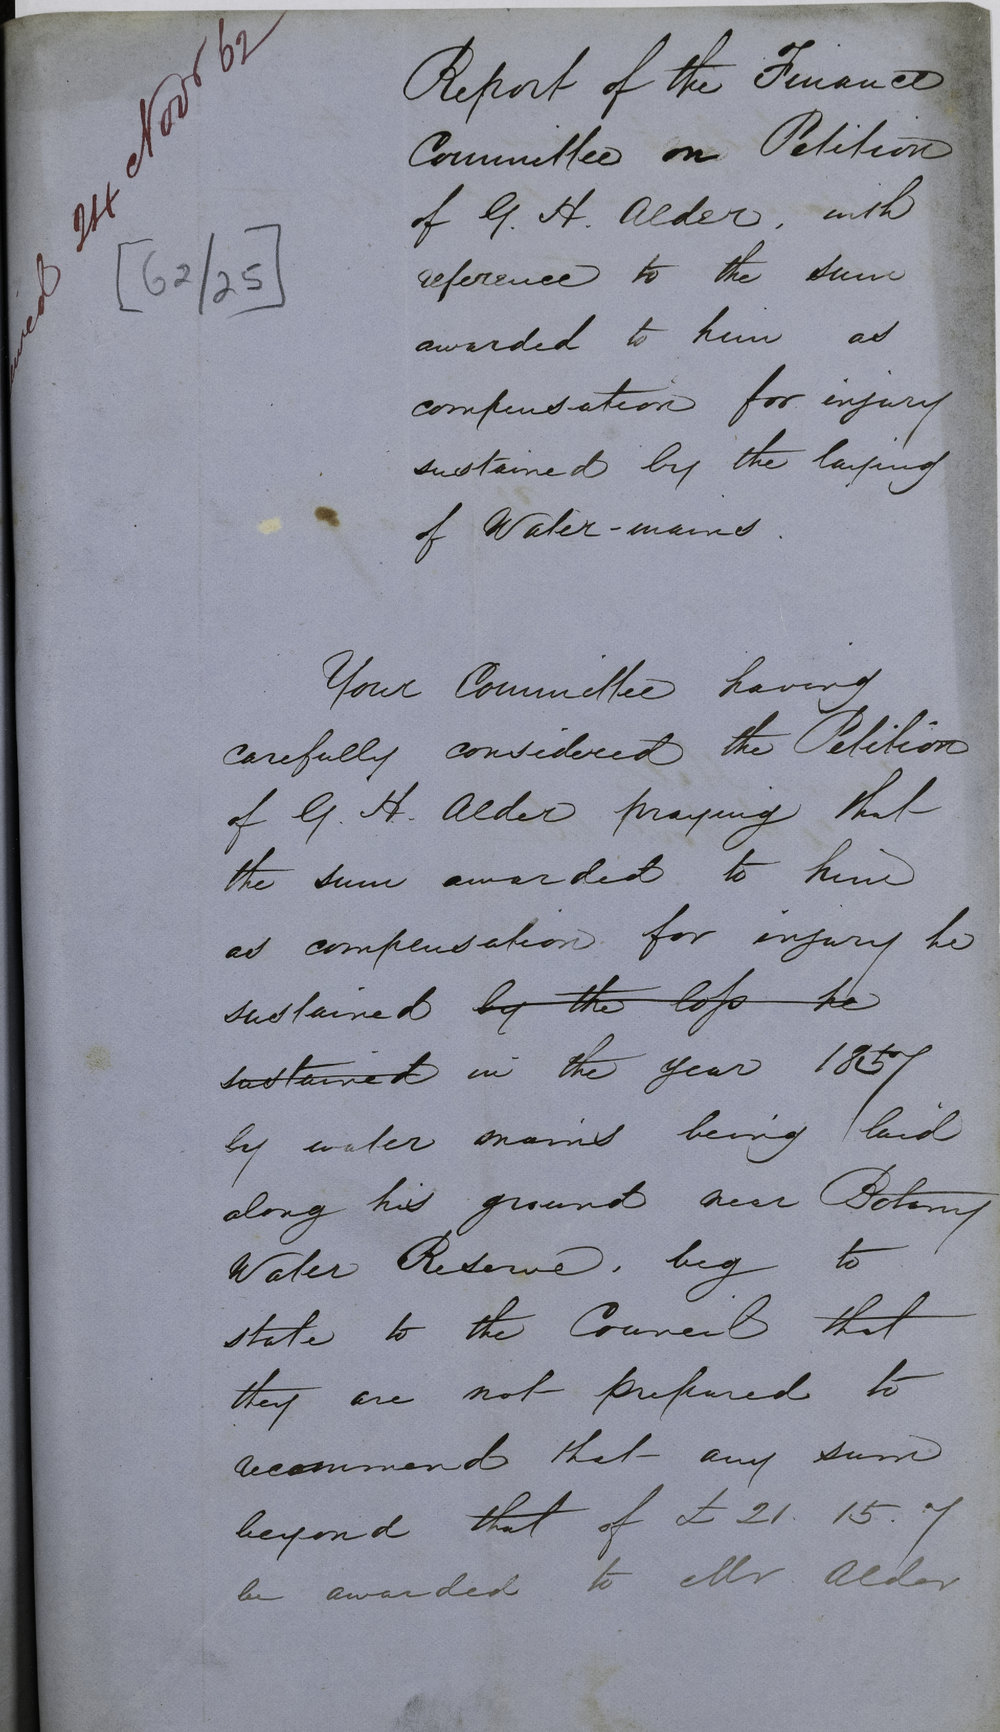 24 Novr 62
[62/25]
Report of the Finance
Committee on Petition
of G. H. Alder, with
reference to the sum
awarded to him as
compensation for injury
sustained by the laying
of Water-mains.
Your Committee having
carefully considered the Petition
of G. H. Alder praying that
the sum awarded to him
as compensation for injury he
sustained by the loss he
sustained in the year 1857
by water mains being laid
along his ground near Botany
Water Reserve, beg to
state to the Council that
they are not prepared to
recommend that any sum
beyond that of £21. 15. 7
be awarded to Mr Alder